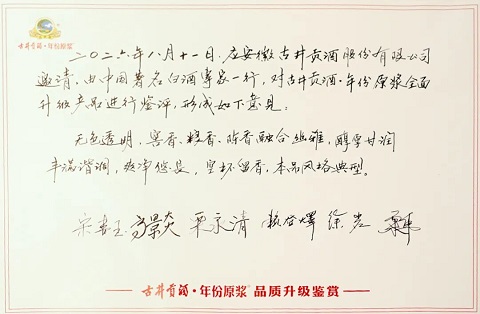 古井贡酒·年份原浆
二〇二六年八月十一日,应安徽古井贡酒股份有限公司
邀请,由中国著名白酒专家一行,对古井贡酒·年份原浆全面
升级产品进行鉴评,形成如下意见:
无色透明,窖香、粮香、陈香融合幽雅,醇厚甘润
丰满谐调,爽净悠长,空杯留香,本品风格典型。
徐岩
古井贡酒·年份原浆 品质升级鉴赏